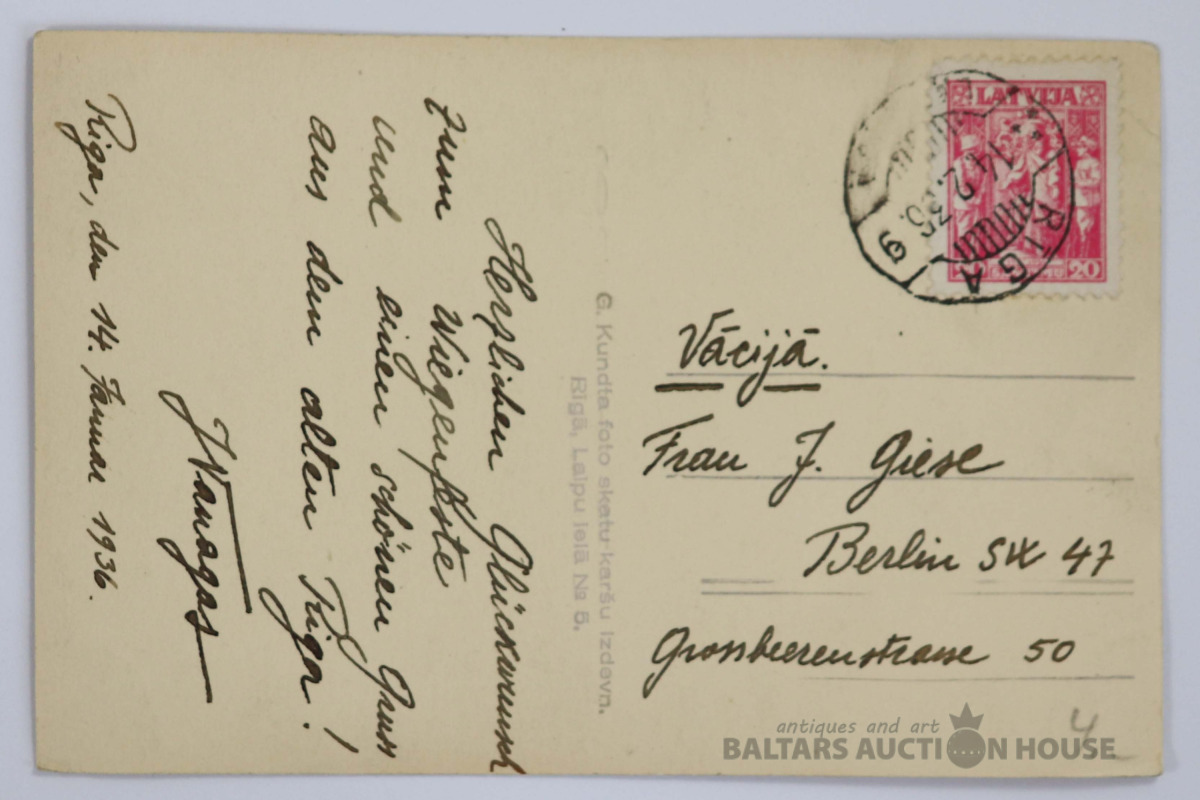 Herzlichen Glückwunsch
zum Wiegenfeste
und einen schönen Gruss
aus dem alten Riga!
JVanagas
Riga, den 14. Januar 1936.
G. Kundta foto skatu karšu izdevn.
Rīgā, Laipu ielā № 5.
LATVIJA
20
RIGA
14.2.36.
Vācijā.
Frau J. Giese
Berlin SW 47
Grossbeerenstrasse 50
4
antiques and art
BALTARS AUCTION HOUSE